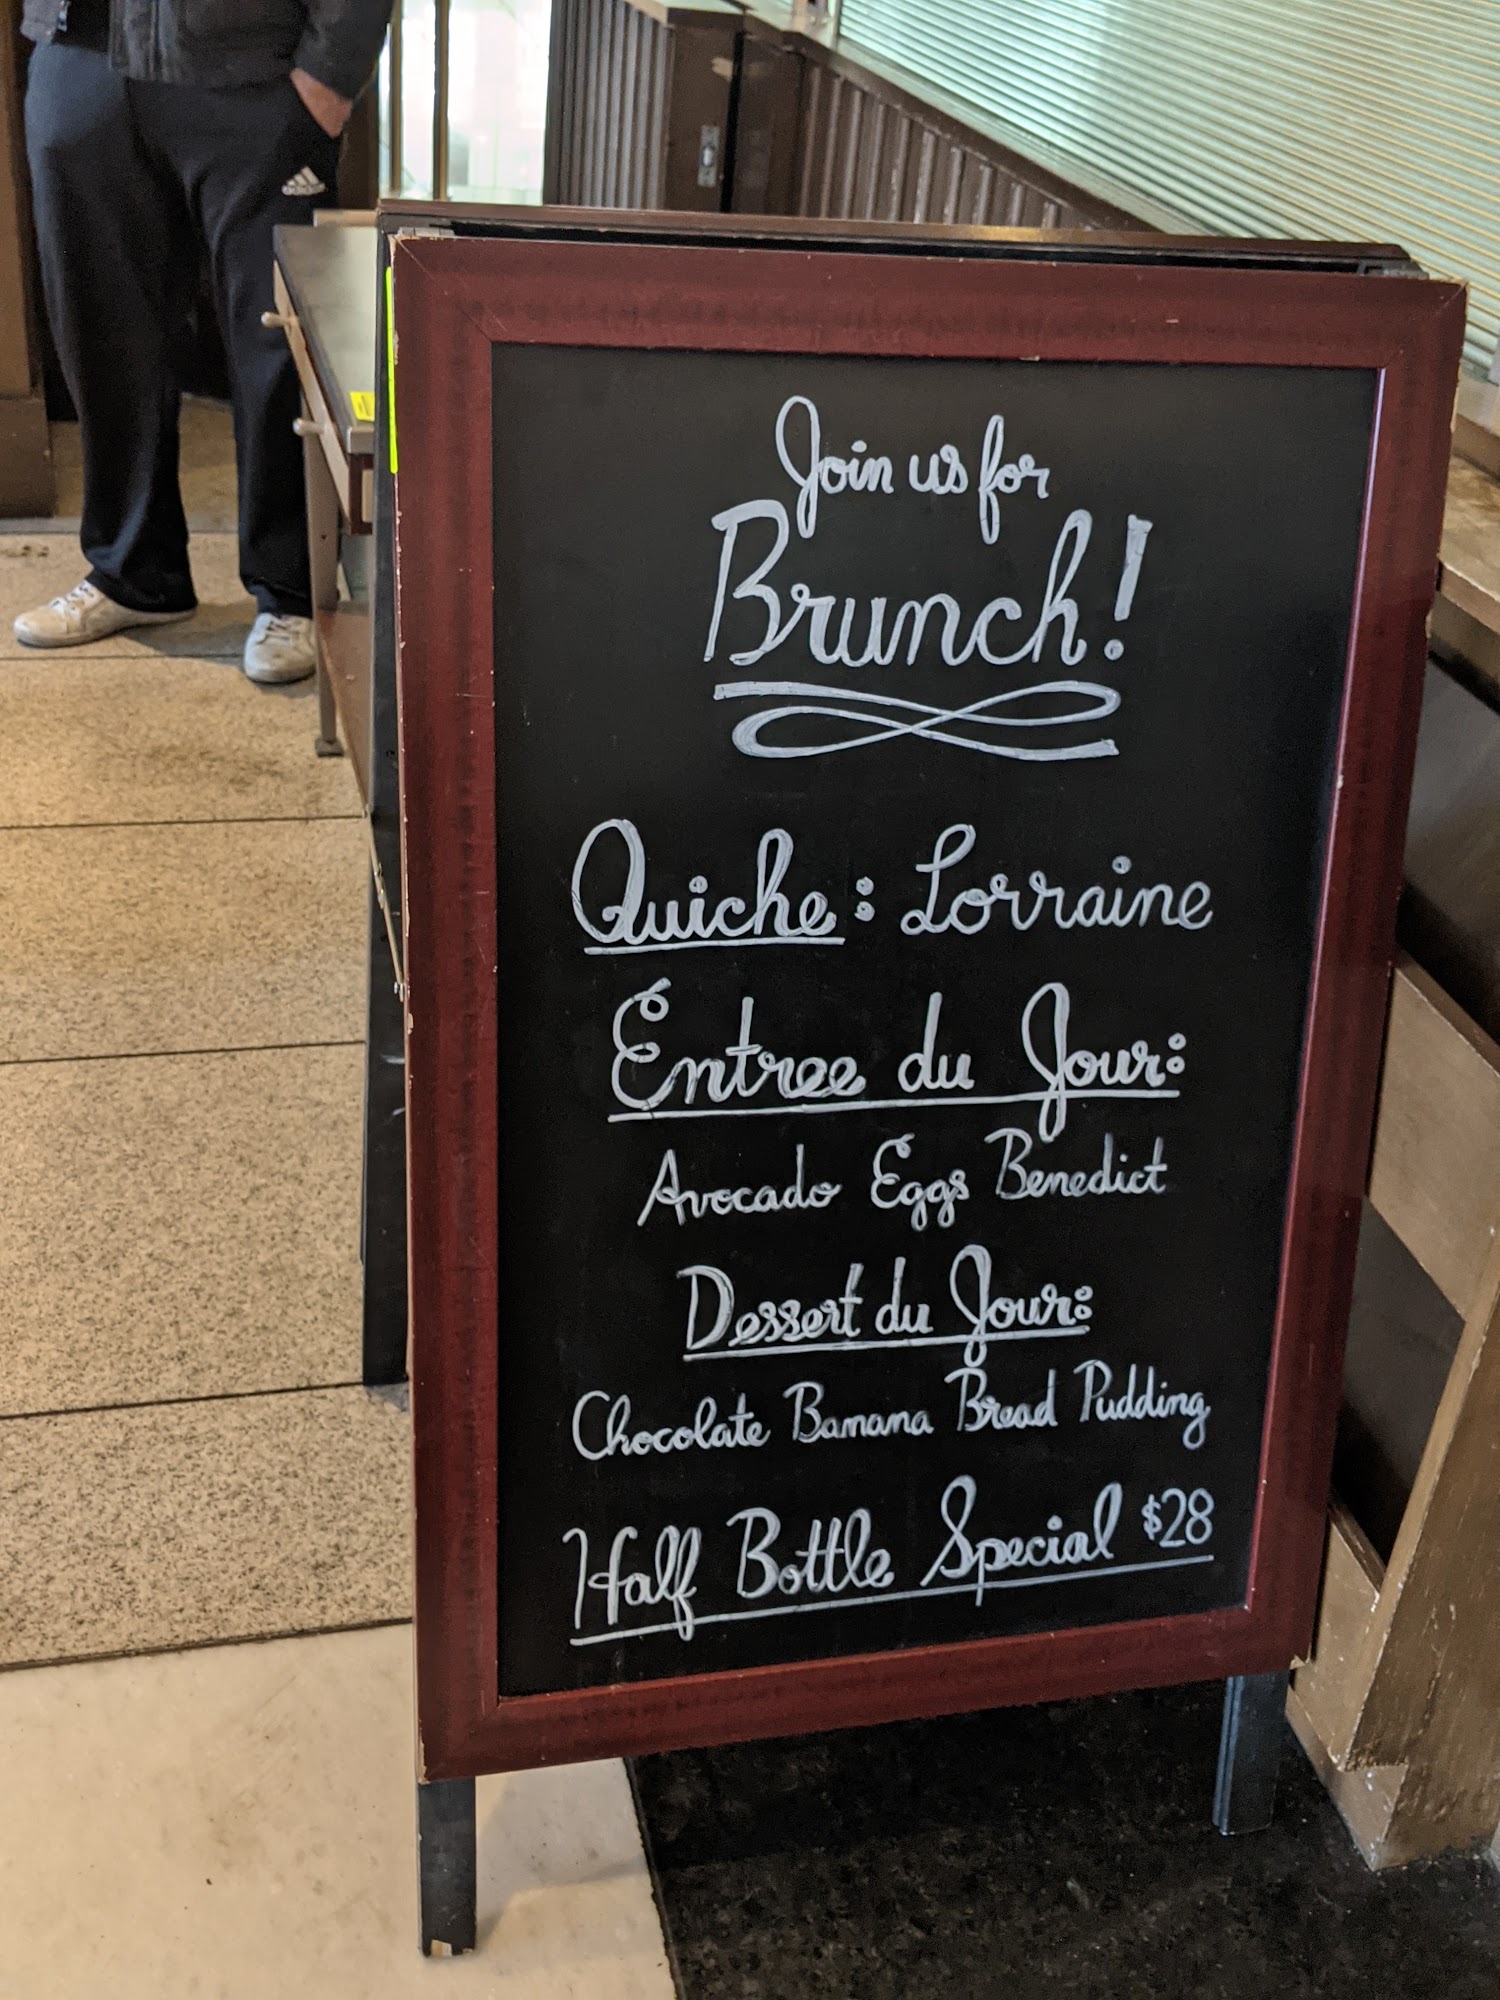 Join us for
Brunch!
Quiche: Lorraine
Entree du Jour:
Avocado Eggs Benedict
Dessert du Jour:
Chocolate Banana Bread Pudding
Half Bottle Special $28
adidas